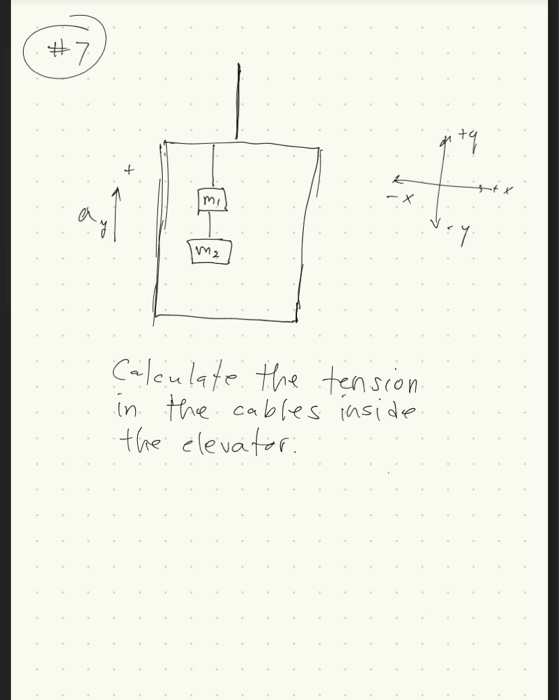 #7
+y
+
m1
+x
-x
ay
-y
m2
Calculate the tension
in the cables inside
the elevator.